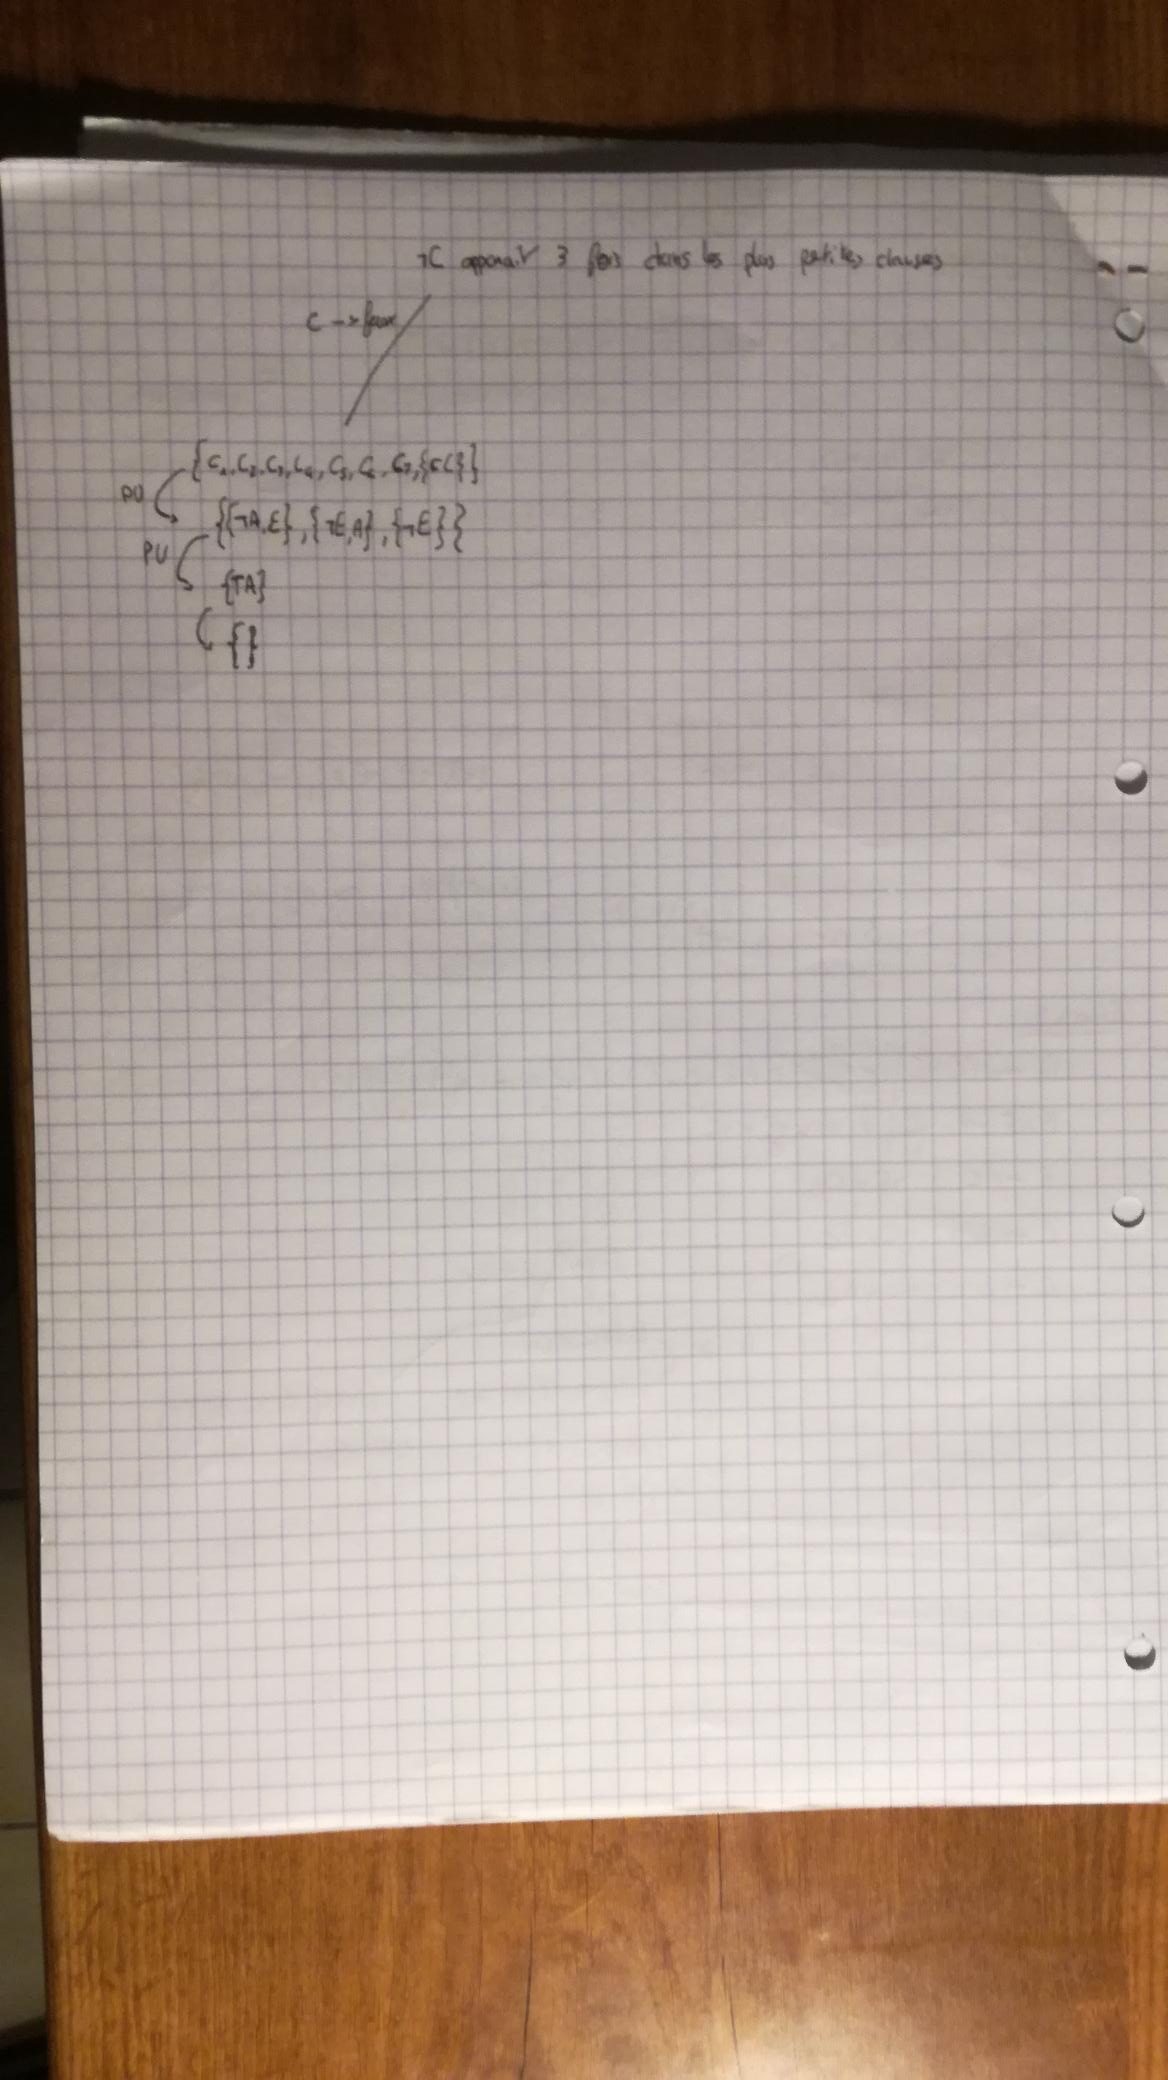 ¬C apparaît 3 fois dans les plus petites clauses
C → faux
{C₁, C₂, C₃, C₄, C₅, C₆, C₇, {¬C}}
PU
{{¬A, E}, {¬E, A}, {¬E}}
PU
{¬A}
{}